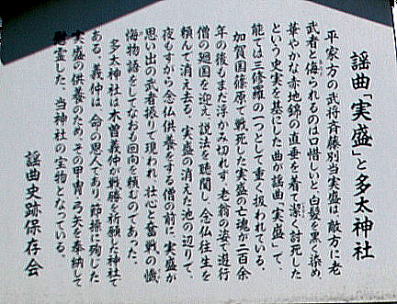 謡曲「実盛」と多太神社
平家方の武将斉藤別当実盛は敵方に老
武者と侮られるのは口惜しいと、白髪を黒く染め
華やかな赤地錦の直垂を着け潔く討死した
という史実を基にした曲が謡曲「実盛」で、
能では三修羅の一つとして重く扱われている。
加賀国篠原で戦死した実盛の亡魂が二百余
年の後もまだ浮かび切れず、老翁の姿で遊行
僧の廻国を迎え、説法を聴聞し、念仏往生を
頼んで消え去る。実盛の消えた池の辺りで、
夜もすがら念仏供養をする僧の前に、実盛が
思い出の武者振りで現われ、壮心と奮戦の懺
悔物語をしてなおも回向を頼むのであった。
多太神社は木曽義仲が戦勝を祈願した神社で
ある。義仲は、命の恩人であり節操に殉じた
実盛の供養のため、その甲冑、弓矢を奉納して
慰霊した。当神社の宝物となっている。
謡曲史跡保存会